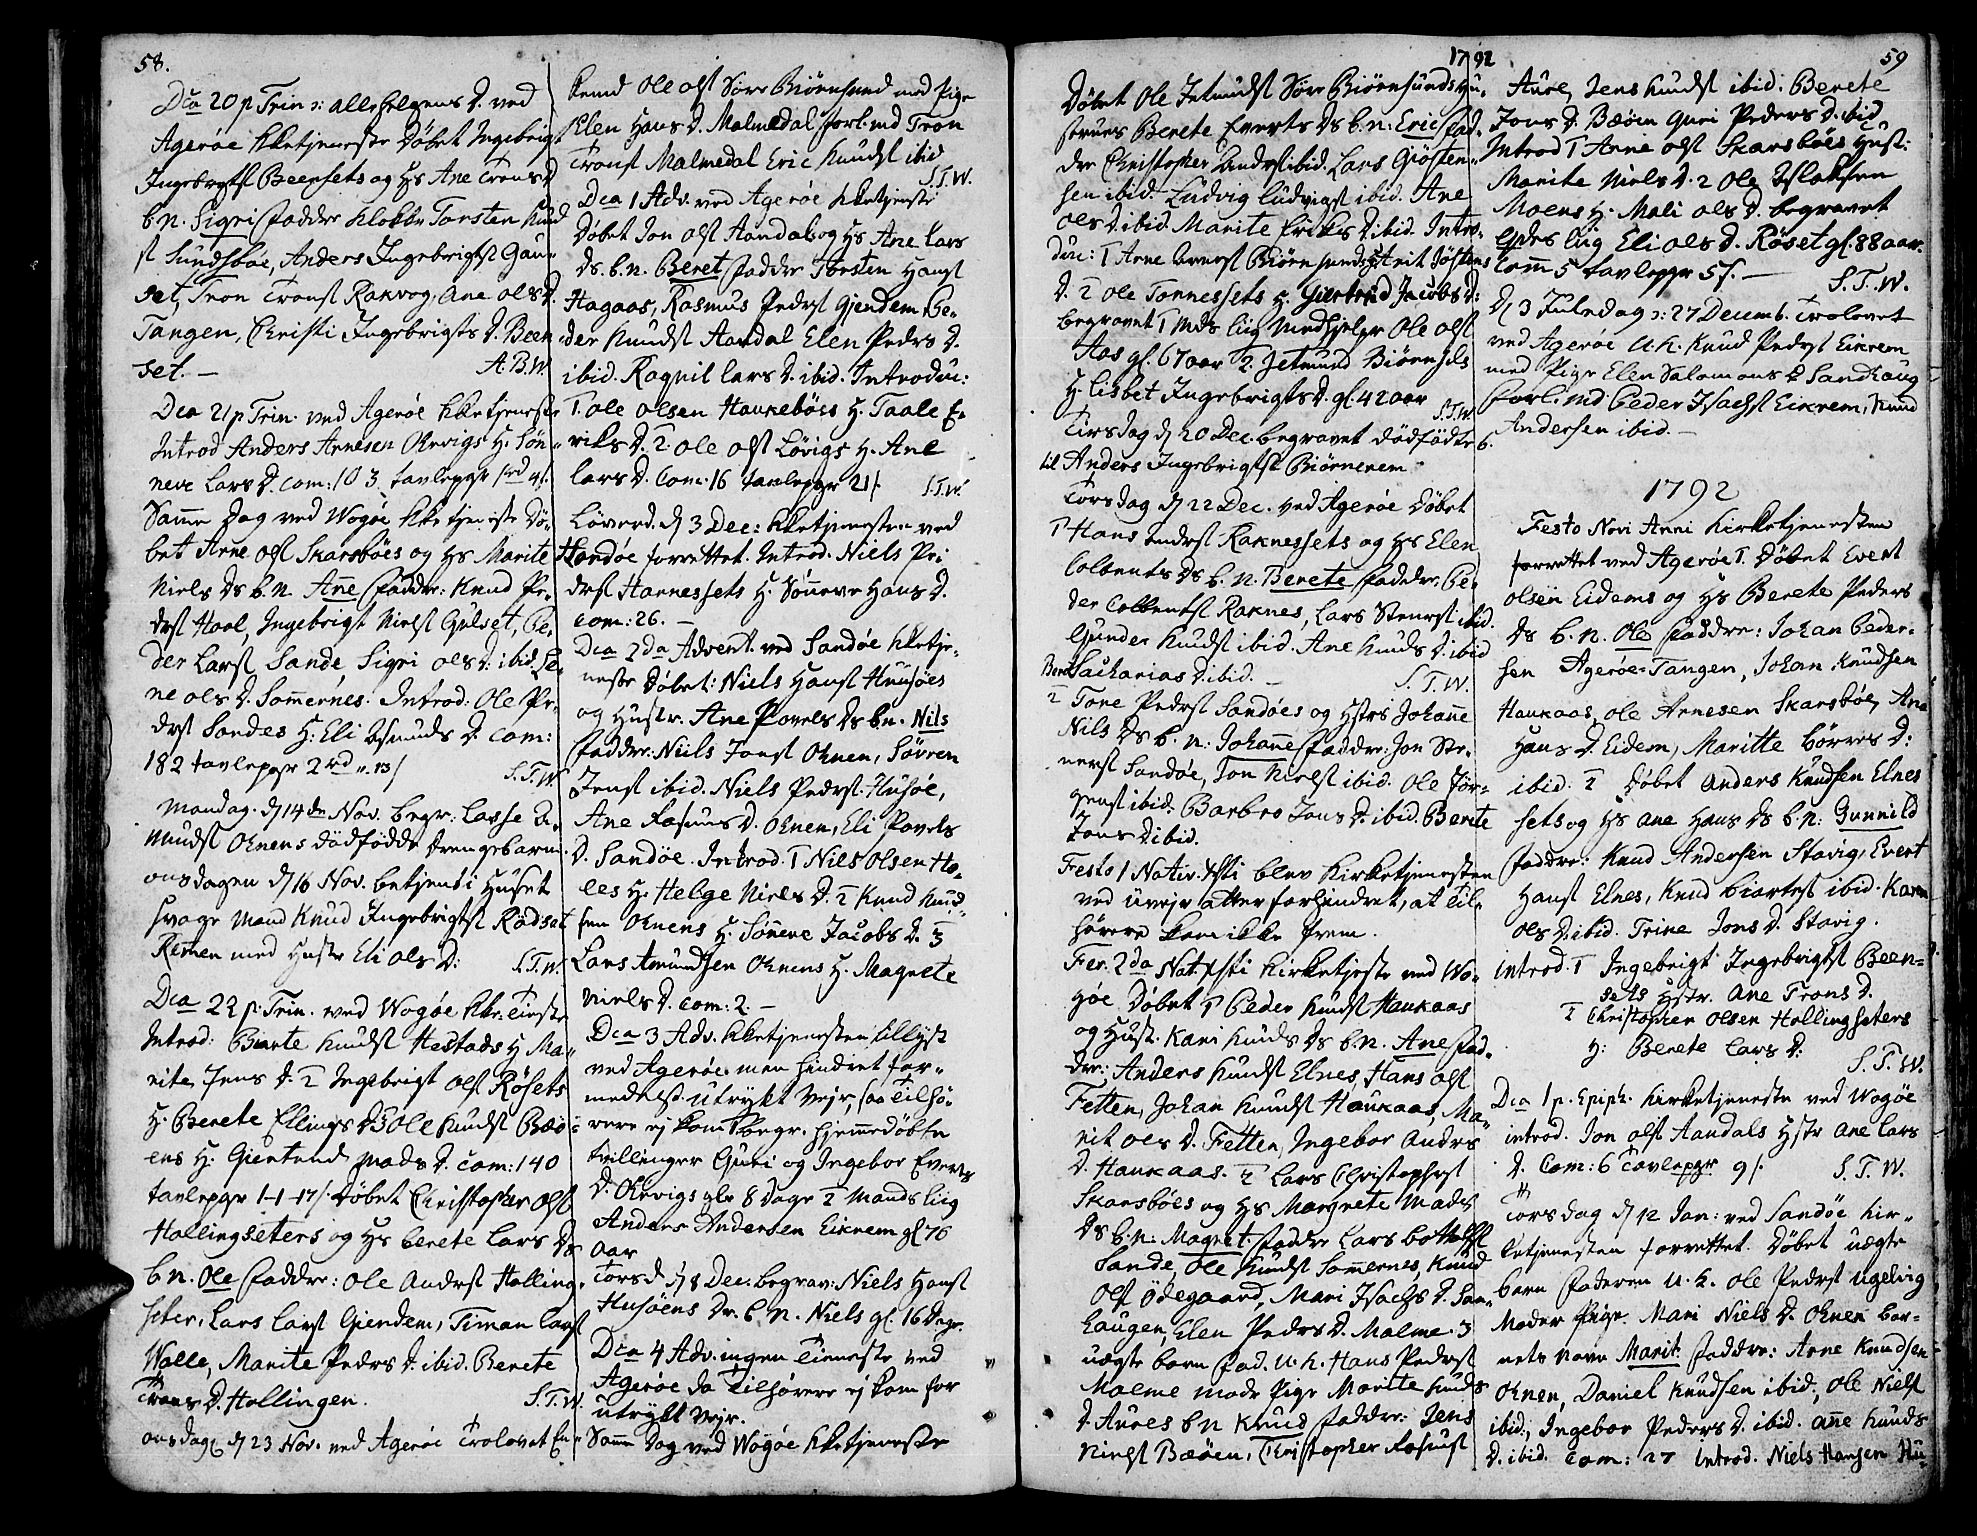 58.
Dca 20 p Trin ɔ: alle helgens D. ved
Agerøe kketjeneste Døbet Ingebrigt
Ingebrigts Beensets og Hs Ane Trons D
b.n. Sigri faddre klokker Torsten Knud
st Sundsboe, Anders Ingebrigtst Gau-
set, Tron Tronst Rakvog, Ane Ols D.
Tangen, Christi Ingebrigts D. Been-
set. — A.B.W.
Dca 21 p Trin. ved Agerøe kketjeneste
Introd Anders Arnesen Orvigs H. Søn-
neve Lars D. Com: 103 tavlepgr
Samme Dag ved Wogøe kketjeneste Dø-
bet Arne Olst Skarsbøes og Hs Marite
Niels Ds b.n. Ane faddre: Knud Pe-
derst Hool, Ingebrigt Nielst Gulset, Pe-
der Larst Sande Sigri Ols D. ibid. Le-
ne Ols D. Sommernes. Introd: Ole Pe-
derst Sandes H: Eli Asmuds D. Com:
182 tavlepgr 2rd „ 13/ S.T.W.
Mandag d 14de Nov. begr: Lasse A-
mundst Ohnens dødfødde drengebarn.
onsdagen d 16 Nov. betjent i Huset
svage mand Knud Ingebrigtst Rødset
Remen med Hustr Eli Ols D: S.T.W.
Dca 22 p: Trin. ved Wogøe kke: Tieneste
Introd: Biarte Knudst Hestads H Ma-
rite Jens D. 2 Ingebrigt Olst Røsets
H. Berete Ellings D 3 Ole Knudst Bæø-
ens H. Giertrud Mads D. Com: 140
tavlepgr 1-1-17/. Døbet Christopher Olst
Hollingseters og Hs Berete Lars Ds
b.n. Ole faddre: Ole Anderst Holling-
seter, Lars Larst Giendem, Timan Larst
Walle, Marite Peders D. ibid. Berete
Trons D. Hollingen. S.T.W.
onsdag d 23 Nov. ved Agerøe Trolovet En-
kemd Ole Olst Søre Biørnsund med Pige
Elen Hans D. Malmedal forl. md Tron
Tronst Malmedal Eric Knudst ibid
S.T.W.
Dca 1 Adv. ved Agerøe kketjeneste
Døbet Jon Olst Aandals og Hs Ane Lars
Ds. b.n. Beret faddre Torsten Hanst
Hagaas, Rasmus Pederst Gjendem, Pe-
der Knudst Aandal Elen Peders D.
ibid. Ragnil Lars D. ibid. Introduc:
1. Ole Olsen Haukebøes H. Taale E-
riks D. 2. Ole Olst Løvigs H. Ane
Lars D. Com: 16 tavlepgr 21/. S.T.W.
Løverd. d 3 Dec: kketjenesten ved
Sandøe forrettet. Introd. Niels Pe-
derst Harnessets H. Sønneve Hans D.
Com: 26. —
Dca 2da Advent. ved Sandøe kketje-
neste Døbet: Niels Hanst Husøes
og Hustr. Ane Povels Ds b.n. Nils
faddre: Niels Jonst Ohnen, Søvren
Jenst ibid. Niels Pederst. Husøe,
Ane Rasmus D. Ohnen, Eli Povels
D. Sandøe. Introd. 1 Niels Olsen Ho-
les H. Helge Niels D. 2 Knud Knud-
sen Ohnens H. Sønneve Jacobs D. 3
Lars Amundsen Ohnens H. Magnete
Niels D. Com: 2. —
Dca 3 Adv. kketjenesten tillyst
ved Agerøe. men hindret for-
medelst. utrykt Vejr, saa Tilhø-
rere ej kom. begr. hjemmedøbte
tvillinger Guri og Ingebor Everts
D. Orvigs gle 8 Dage 2 Mands liig
Anders Andersen Eikrem gl 76
aar
Torsd. d 8 Dec. begrav: Niels Hanst
Husøens Dr. b.n. Niels gl. 16 Dage.
Dca 4 Adv. ingen Tieneste ved
Agerøe da Tilhørere ej kom for
utrykt Vejr.
Samme Dag ved Wogøe kketjeneste
1792
Døbet Ole Jetmundst Søre Biørnsunds Hu-
strues Berete Everts Ds b.n: Eric fad-
dre Christopher Anderst ibid. Lars Giøsten-
sen ibid. Ludvig Ludvigst ibid. Ane
Ols D. ibid. Marite Eriks D. ibid. Intro-
duc: 1 Arne Iverst Biørnsunds H. Marit Jøstens
D. 2 Ole Tønnessets H. Giertrud Jacobs D:
begravet 1 Mds liig Medhjelper Ole Olst
Aas gl. 67 aar 2. Jetmund Biørnsets
H. Lisbet Ingebrigts D. gl. 42 aar
S.T.W.
Tirsdag d 20 Dec. begravet dødfødte b.
til Anders Ingebrigtst Biørnerem
Torsdag d 22 Dec. ved Agerøe Døbet
1 Hans Anderst Raknessets og Hs Elen
Colbents Ds b.n. Berete faddre: Pe-
der Colbentst Raknes, Lars Stenerst ibid.
Gunder Knudst ibid. Ane Knuds D. ibid
Beret Sacharias D. ibid. — S.T.W.
2 Tore Pederst Sandøes og Hstrs Johanne
Nils Ds b.n: Johanne faddre: Jon Ste-
nerst Sandøe, Jon Nielst ibid. Ole Jør-
genst ibid. Barbro Jons D. ibid. Berite
Jons D. ibid.
Festo 1 Nativ. Xsti blev Kirketjenesten
ved uvejr atter forhindret, at Til-
hørere kom ikke frem.
Fer. 2da Nat. Xsti Kirketjeste ved Wo-
gøe Døbet 1 Peder Knudst Haukaas
og Hust. Kari Knuds Ds b.n. Ane fad-
dre: Anders Knudst Elnes, Hans Olst
Fetten, Johan Knudst Haukaas, Ma-
rit Ols D. Fetten, Ingebor Anders
D. Haukaas. 2 Lars Christopherst
Skarsbøes og Hs Margrete Mads
Ds b.n: Magnet. faddre Lars Bottolfst
Sande, Ole Knudst Sommernes, Knud
Olst Ødegaard, Mari Isachs D. San-
haugen, Elen Peders D. Malme. 3
uægte barn fad. U.k. Hans Pederst
Malme mode Pige Maritte Knuds
D. Aures b.n Knud faddre: Jens
Nielst Bæøen, Christopher Rasmust
59
Aure, Jens Knudst ibid. Berete
Jons D. Bæøen Guri Peders D. ibid
Introd 1 Arne Olst Skarsbøes Hust:
Marite Niels D. 2 Ole Islaksen
Moens H. Mali Ols D. begravet
Eldes liig Eli Ols D. Røset gl. 88 aar.
Comm 5 tavlepgr 5/. — S.T.W.
D 3 Juledag ɔ: 27 Decemb. Trolovet
ved Agerøe U.k. Knud Pederst Eikrem
med Pige Elen Salomons D Sandhaug
forl. md. Peder Isachst Eikrem, Knud
Andersen ibid. —
1792
Festo Novi Anni Kirketjenesten
forrettet ved Agerøe 1. Døbet Evert
Olsen Eidems og Hs Berete Peders
Ds b.n. Ole faddre: Johan Peder-
sen Agerøe-Tangen, Johan Knudsen
Haukaas, Ole Arnesen Skarsbøe, Ane
Hans D. Eidem, Maritte Børres D:
ibid. 2 Døbet Anders Knudsen Elnes
sets og Hs Ane Hans Ds b.n: Gunnild
faddre: Knud Andersen Stavig, Evert
Hanst Elnes, Knud Biartest ibid. Karen
Ols D. ibid. Trine Jons D. Stavig.
introd. 1 Ingebrigt Ingebrigtst Been-
sets Hstr. Ane Trons D.
2 Christopher Olsen Hollingseters
H: Berete Lars D. S.T.W.
Dca 1 p. Epiph. Kirketjeneste ved Wogøe
introd. Jon Olst Aandals Hstr Ane Lars
D. Com: 6 Tavlepgr 9/. S.T.W.
Torsdag d 12 Jan: ved Sandøe Kir-
ketjenesten forrettet. Døbet uægte
barn faderen U.k. Ole Pederst Ugelvig
Moder Pige. Mari Niels D. Ohnen bar-
nets navn Marit. faddre: Arne Knudsen
Ohnen, Daniel Knudsen ibid., Ole Nielst
ibid, Ingebor Peders D. ibid. Anne Knuds
D. ibid. Com: 27 introd. Niels Hansen Hu-